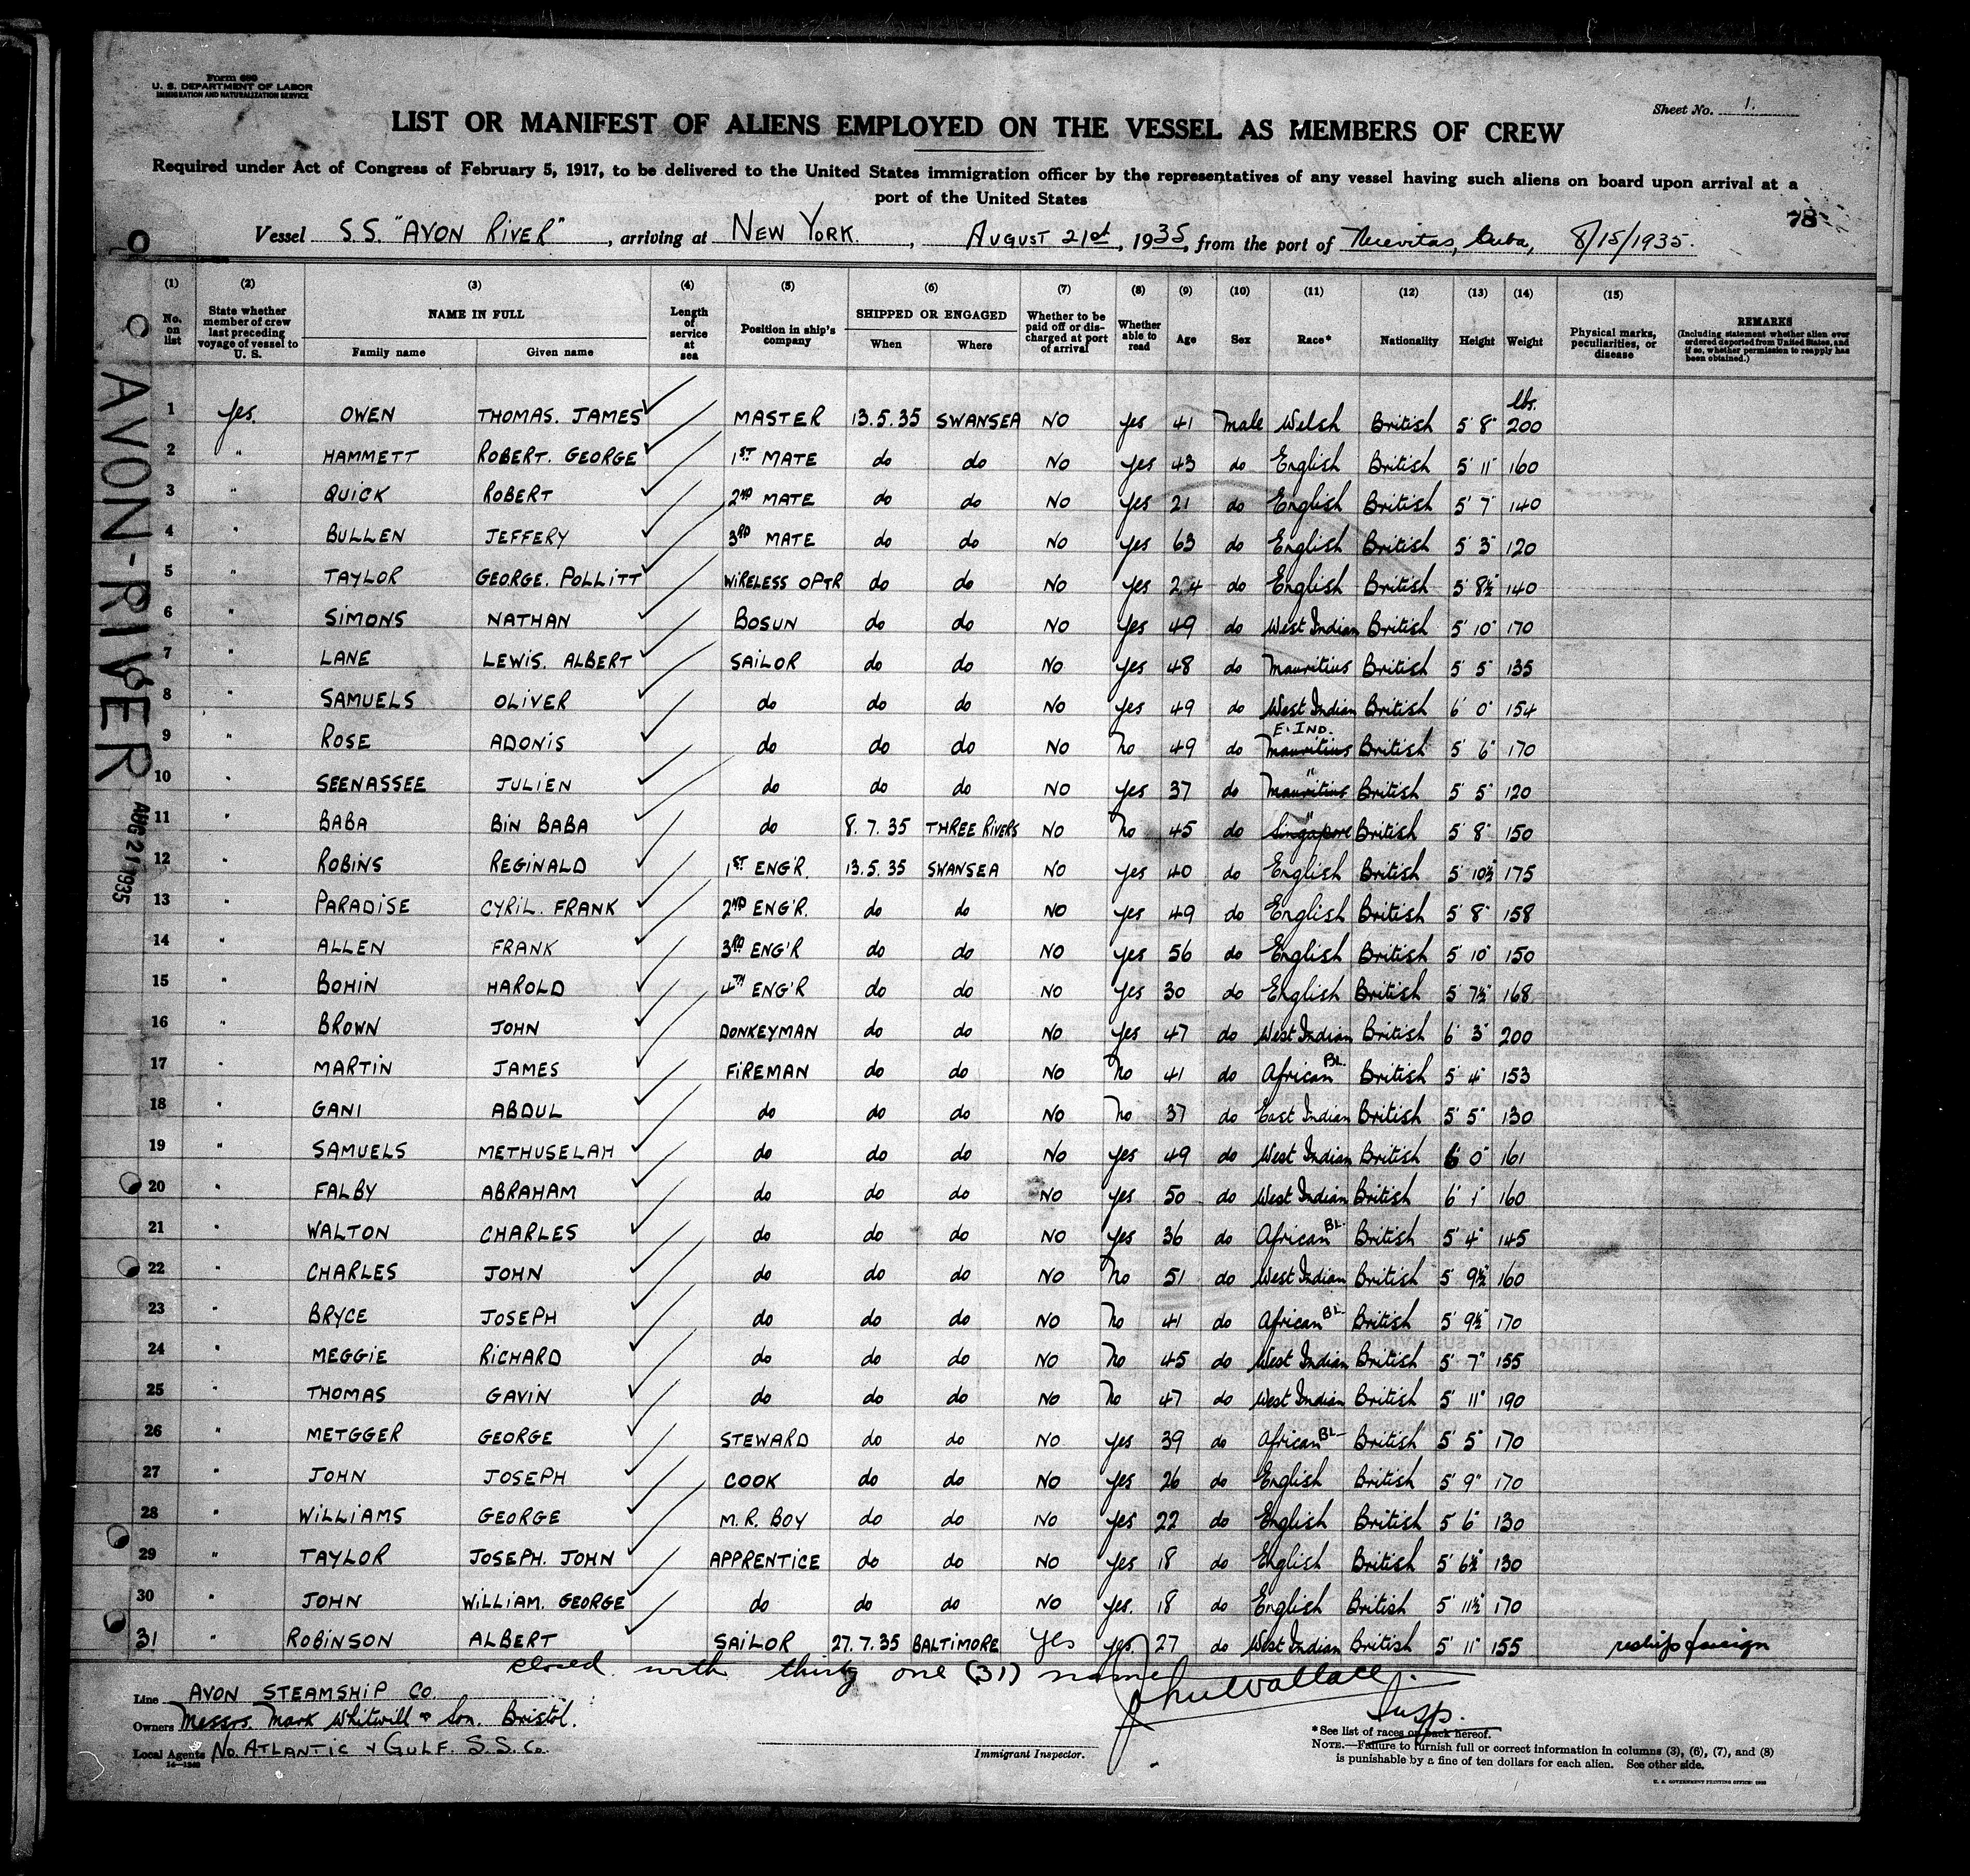 Form 680
U. S. DEPARTMENT OF LABOR
IMMIGRATION AND NATURALIZATION SERVICE
Sheet No. 1.
LIST OR MANIFEST OF ALIENS EMPLOYED ON THE VESSEL AS MEMBERS OF CREW
Required under Act of Congress of February 5, 1917, to be delivered to the United States immigration officer by the representatives of any vessel having such aliens on board upon arrival at a
port of the United States
78
Vessel S.S. "AVON RIVER", arriving at NEW YORK., AUGUST 21st, 1935, from the port of Nuevitas, Cuba, 8/15/1935.
(1) (2) (3) (4) (5) (6) (7) (8) (9) (10) (11) (12) (13) (14) (15)
No. on list State whether member of crew last preceding voyage of vessel to U. S. NAME IN FULL Family name Given name Length of service at sea Position in ship's company SHIPPED OR ENGAGED When Where Whether to be paid off or discharged at port of arrival Whether able to read Age Sex Race* Nationality Height Weight Physical marks, peculiarities, or disease REMARKS (Including statement whether alien ever ordered deported from United States, and if so, whether permission to reapply has been obtained.)
lbs.
1 yes. OWEN THOMAS. JAMES MASTER 13.5.35 SWANSEA NO yes 41 male Welsh British 5' 8" 200
2 " HAMMETT ROBERT. GEORGE 1ST MATE do do NO yes 43 do English British 5' 11" 160
3 " QUICK ROBERT 2ND MATE do do NO yes 21 do English British 5' 7" 140
4 " BULLEN JEFFERY 3RD MATE do do NO yes 63 do English British 5' 3" 120
5 " TAYLOR GEORGE. POLLITT WIRELESS OPTR do do NO yes 24 do English British 5' 8½" 140
6 " SIMONS NATHAN BOSUN do do NO yes 49 do West Indian British 5' 10" 170
7 " LANE LEWIS. ALBERT SAILOR do do NO yes 48 do Mauritius British 5' 5" 135
8 " SAMUELS OLIVER do do do NO yes 49 do West Indian British 6' 0" 154
9 " ROSE ADONIS do do do NO no 49 do E. IND. Mauritius British 5' 6" 170
10 " SEENASSEE JULIEN do do do NO yes 37 do " Mauritius British 5' 5" 120
11 " BABA BIN BABA do 8.7.35 THREE RIVERS NO no 45 do " Singapore British 5' 8" 150
12 " ROBINS REGINALD 1ST ENG'R. 13.5.35 SWANSEA NO yes 40 do English British 5' 10½" 175
13 " PARADISE CYRIL. FRANK 2ND ENG'R. do do NO yes 49 do English British 5' 8" 158
14 " ALLEN FRANK 3RD ENG'R do do NO yes 56 do English British 5' 10" 150
15 " BOHIN HAROLD 4TH ENG'R do do NO yes 30 do English British 5' 7½" 168
16 " BROWN JOHN DONKEYMAN do do NO yes 47 do West Indian British 6' 3" 200
17 " MARTIN JAMES FIREMAN do do NO no 41 do African BL. British 5' 4" 153
18 " GANI ABDUL do do do NO no 37 do East Indian British 5' 5" 130
19 " SAMUELS METHUSELAH do do do NO yes 49 do West Indian British 6' 0" 161
20 " FALBY ABRAHAM do do do NO yes 50 do West Indian British 6' 1" 160
21 " WALTON CHARLES do do do NO yes 36 do African BL. British 5' 4" 145
22 " CHARLES JOHN do do do NO no 51 do West Indian British 5' 9½" 160
23 " BRYCE JOSEPH do do do NO no 41 do African BL. British 5' 9½" 170
24 " MEGGIE RICHARD do do do NO no 45 do West Indian British 5' 7" 155
25 " THOMAS GAVIN do do do NO no 47 do West Indian British 5' 11" 190
26 " METGGER GEORGE STEWARD do do NO yes 39 do African BL British 5' 5" 170
27 " JOHN JOSEPH COOK do do NO yes 26 do English British 5' 9" 170
28 " WILLIAMS GEORGE M.R. BOY do do NO yes 22 do English British 5' 6" 130
29 " TAYLOR JOSEPH. JOHN APPRENTICE do do NO yes 18 do English British 5' 6½" 130
30 " JOHN WILLIAM. GEORGE do do do NO yes. 18 do English British 5' 11½" 170
31 " ROBINSON ALBERT SAILOR 27.7.35 BALTIMORE Yes yes. 27 do West Indian British 5' 11" 155 reship foreign
closed with thirty one (31) name
Wallace.
Insp.
Line AVON STEAMSHIP CO.
Owners Messrs. Mark Whitwill & Son. Bristol.
Local Agents NO. ATLANTIC & GULF. S.S. Co.
14—1240
Immigrant Inspector.
*See list of races on back hereof.
NOTE.—Failure to furnish full or correct information in columns (3), (6), (7), and (8)
is punishable by a fine of ten dollars for each alien. See other side.
U. S. GOVERNMENT PRINTING OFFICE:
AVON-RIVER
AUG 21 1935